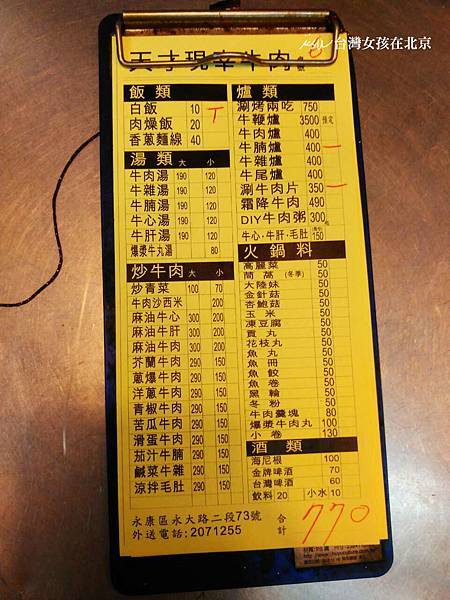 台灣女孩在北京
天才現宰牛肉
飯類
白飯 10 T
肉燥飯 20
香蔥麵線 40
湯類 大 小
牛肉湯 190 120
牛雜湯 190 120
牛腩湯 190 120
牛心湯 190 120
牛肝湯 190 120
爆漿牛丸湯 80
炒牛肉 大 小
炒青菜 100 70
牛肉沙西米 200
麻油牛心 300 200
麻油牛肝 300 200
麻油牛肉 300 200
芥蘭牛肉 290 150
蔥爆牛肉 290 150
洋蔥牛肉 290 150
青椒牛肉 290 150
苦瓜牛肉 290 150
滑蛋牛肉 290 150
茄汁牛腩 290 150
鹹菜牛雜 290 150
涼拌毛肚 290 150
爐類
涮烤兩吃 750
牛鞭爐 3500 預定
牛肉爐 400
牛腩爐 400 一
牛雜爐 400
牛尾爐 400
涮牛肉片 350 一
霜降牛肉 490
DIY牛肉粥 300
牛心·牛肝·毛肚 150
火鍋料
高麗菜 50
茼蒿 (冬季) 50
大陸妹 50
金針菇 50
杏鮑菇 50
玉米 50
凍豆腐 50
貢丸 50
花枝丸 50
魚丸 50
魚冊 50
魚餃 50
魚卷 50
黑輪 50
冬粉 50
牛肉羹塊 80
爆漿牛肉丸 100
小卷 130
酒類
海尼根 100
金牌啤酒 70
台灣啤酒 60
飲料 20 小水 10
永康區永大路二段73號
外送電話:2071255
合計 770